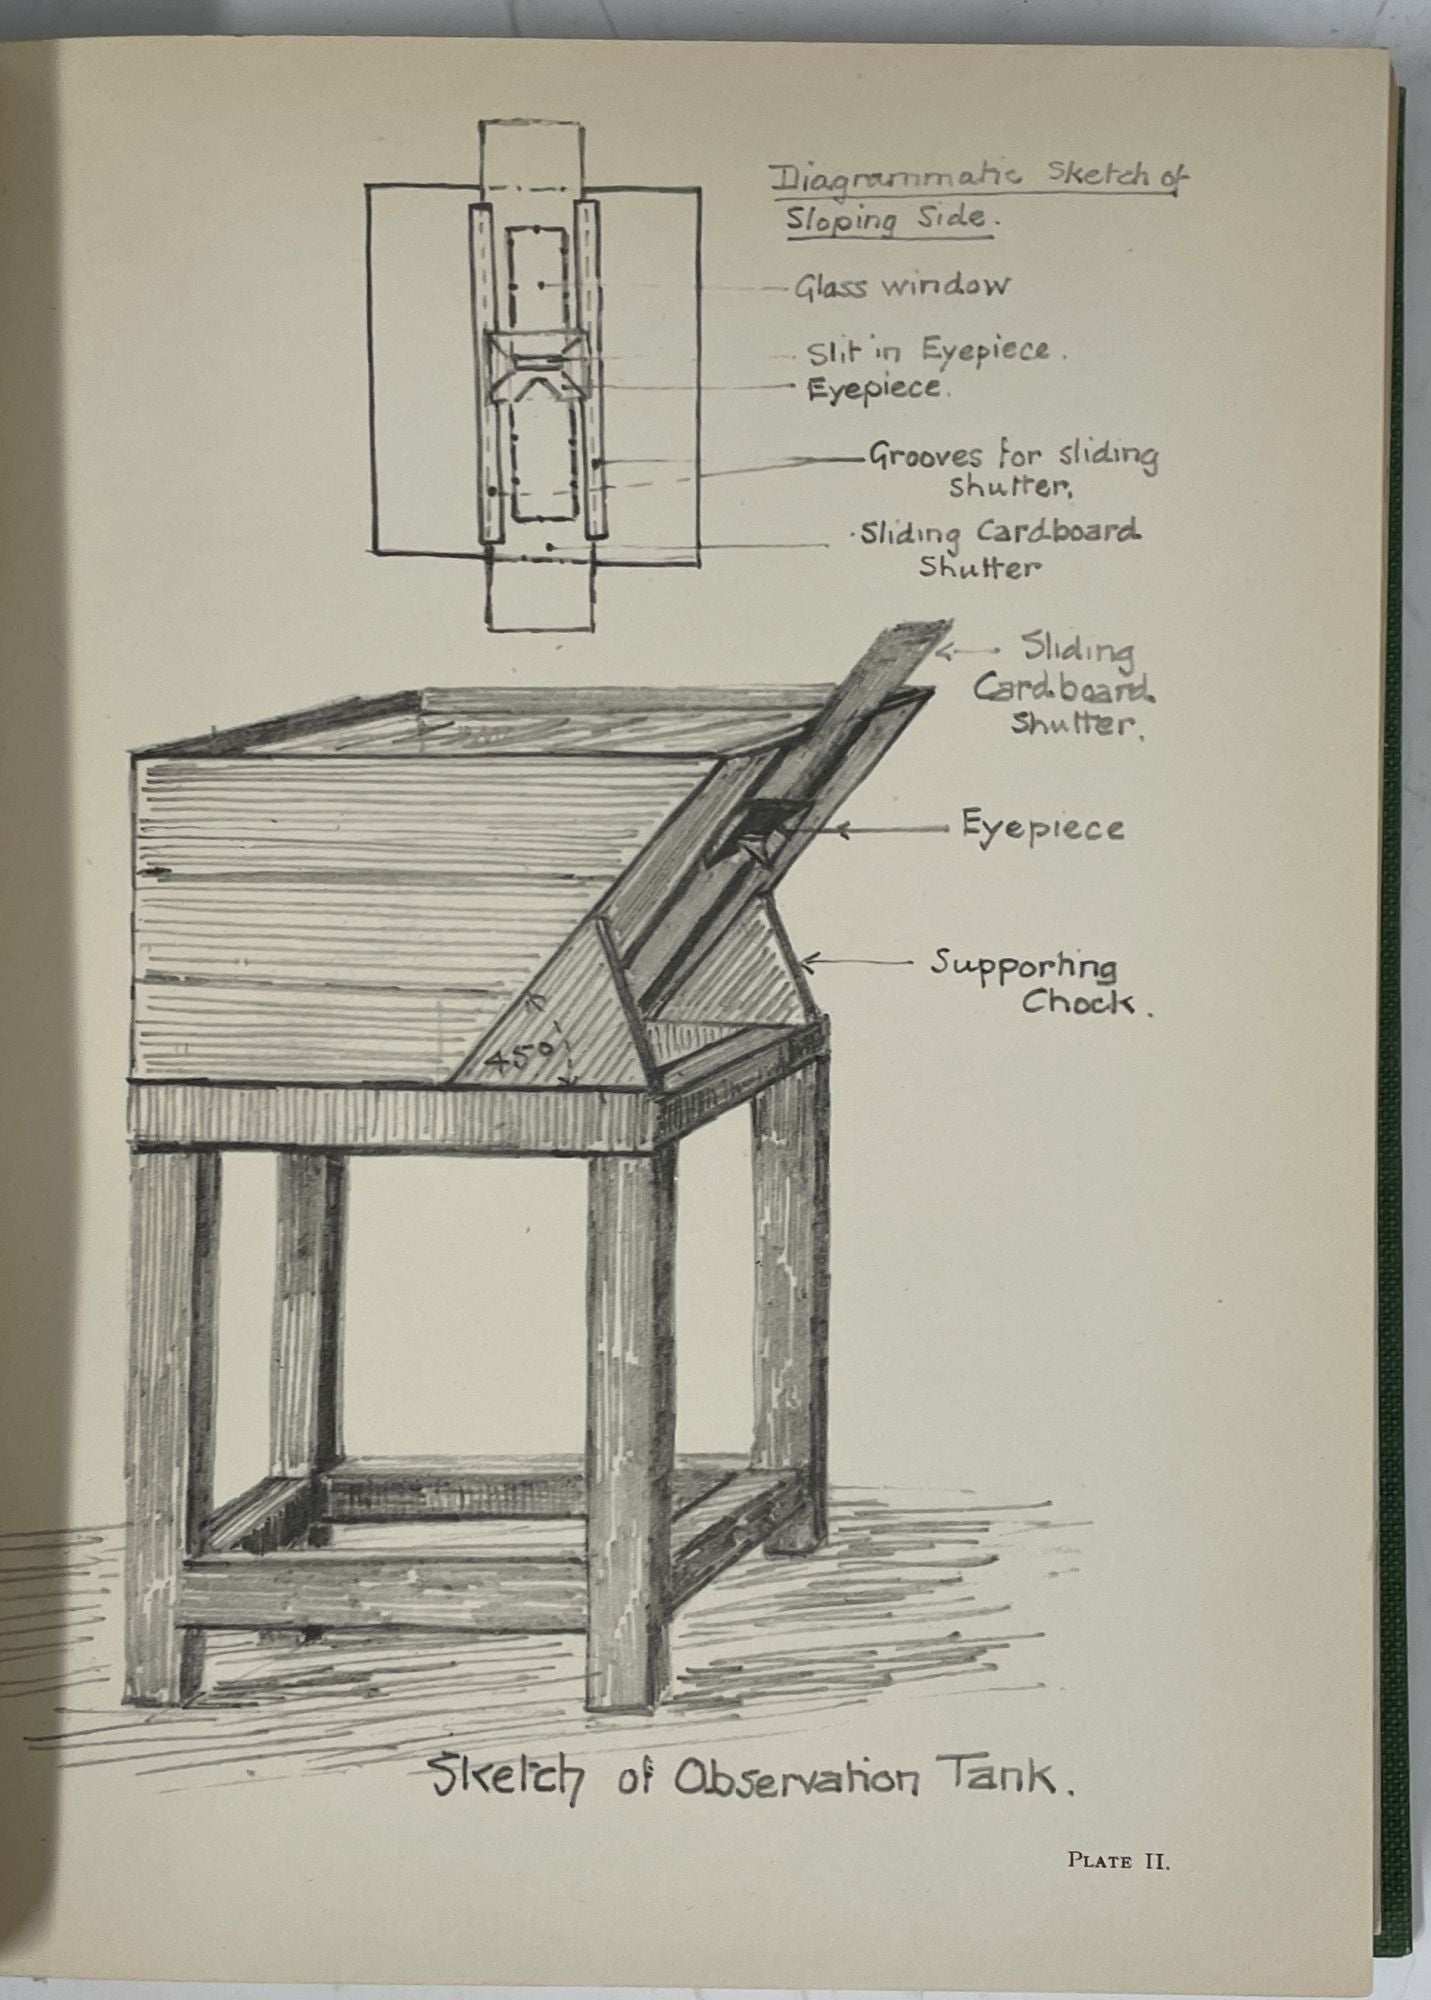 Diagrammatic Sketch of
Sloping Side.
Glass window
Slit in Eyepiece.
Eyepiece.
Grooves for sliding
shutter.
Sliding Cardboard
Shutter
Sliding
Cardboard
Shutter.
Eyepiece
Supporting
Chock.
45°
Sketch of Observation Tank.
PLATE II.